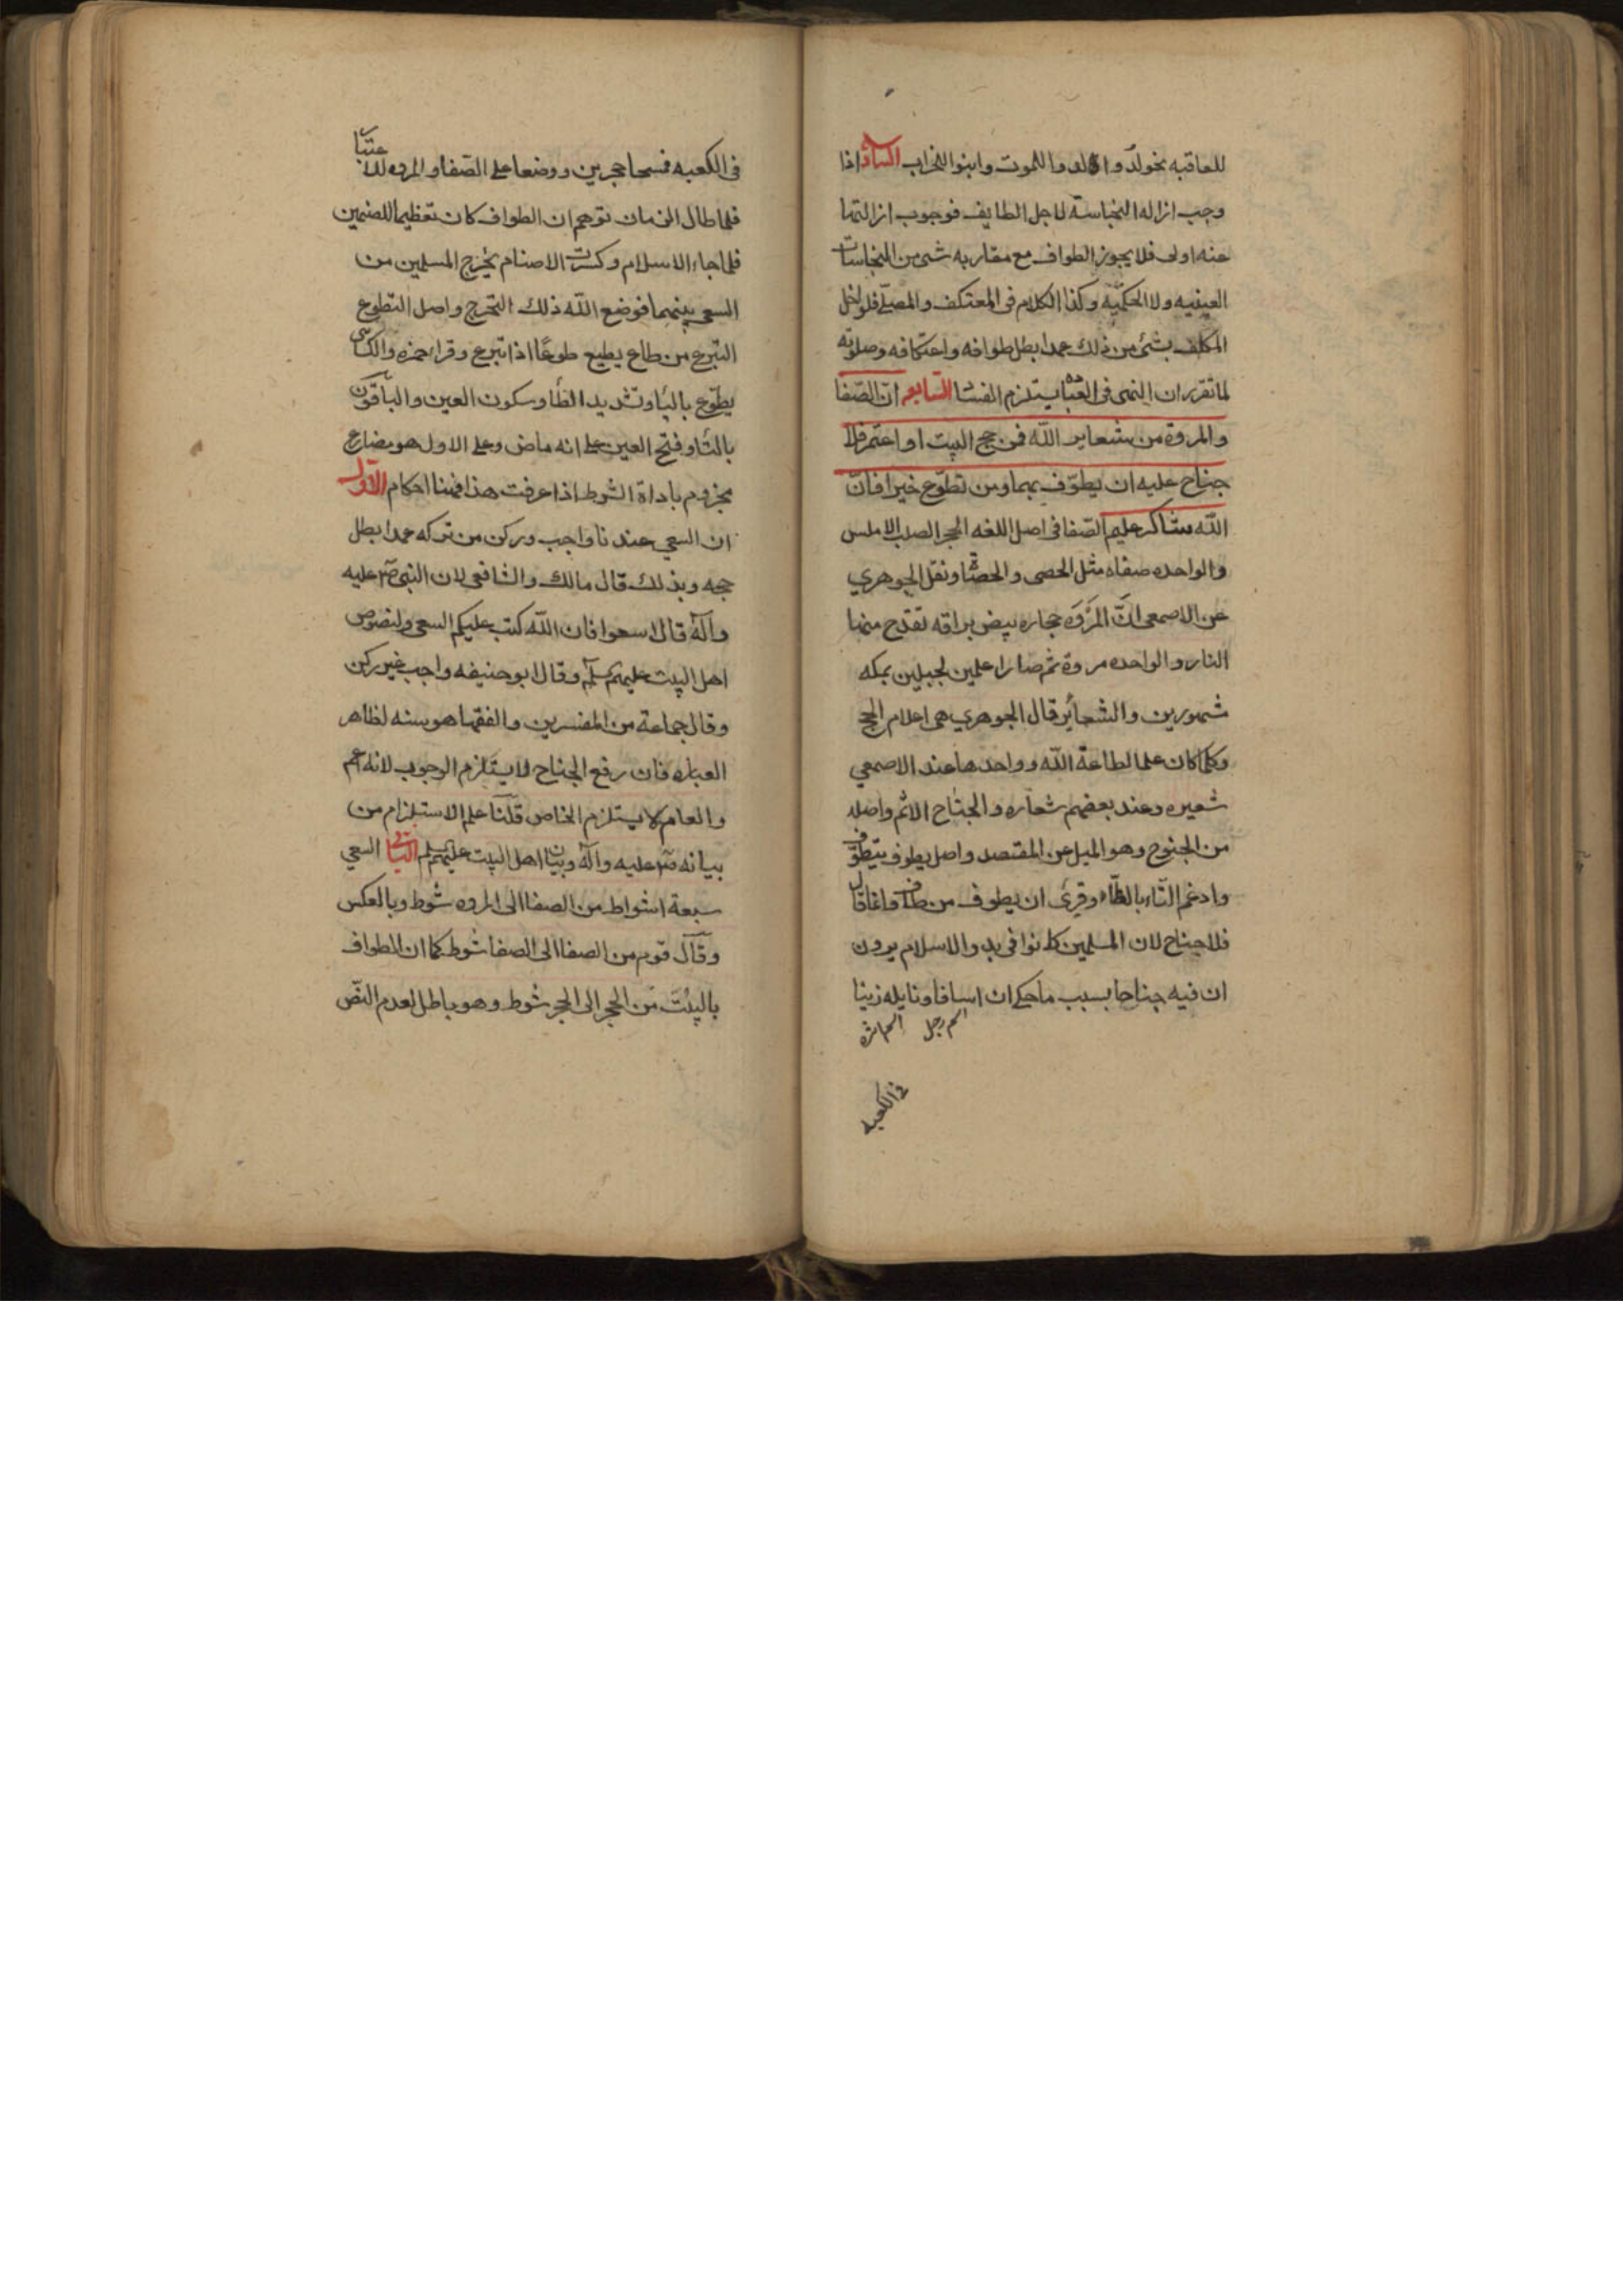 للعاقبه نحو لدوا للموت وابنوا للخراب السادس اذا
وجب ازاله النجاسة لاجل الطايف فوجوب ازالتها
عنه اولى فلا يجوز الطواف مع مقاربه شى من النجاسات
العينيه ولا الحكميّه وكذا الكلام فى المعتكف والمصلّى فلو اخل
المكلف بشئ من ذلك عمدا بطل طوافه واعتكافه وصلوته
لما تقرر ان النهى فى العباده يستلزم الفسا السابع انّ الصّفا
والمروة من شعاير الله فمن حج البيت او اعتمر فلا
جناح عليه ان يطوّف بهما ومن تطوّع خيرا فانّ
الله شاكر عليم الصّفا فى اصل اللغه الحجر الصلب الاملس
والواحده صفاه مثل الحصى والحصاة ونقل الجوهري
عن الاصمعى انّ المَرْوَه حجاره بيض براقه تقدح منها
النار والواحده مروة ثم صارا علمين لجبلين بمكه
مشهورين والشعائر قال الجوهري هى اعلام الحج
وكلما كان علما لطاعة الله وواحدها عند الاصمعي
شعيره وعند بعضهم شعاره والجناح الاثم واصله
من الجنوح وهو الميل عن المقتصد واصل يطوف يتطوّف
وادغم التّاء بالطّاء وقرئ ان يطوف من طاف وانما قال
فلا جناح لان المسلمين كانوا فى بدو الاسلام يرون
ان فيه جناحا بسبب ما حكى ان اسافا ونايله زنيا
اسم رجل اسم امرأه
فى الكعبه
فى الكعبه فمسخا حجرين ووضعا على الصّفا والمروه للاعتبا
فلما طال الزمان توهم ان الطواف كان تعظيما للصنمين
فلما جاء الاسلام وكسرت الاصنام تحرج المسلمين من
السعى بينهما فوضع الله ذلك التحرج واصل التطوع
التبرع من طاع يطيع طوعًا اذا تبرع وقرا حمزه والكسائى
يطوّع بالياء وتشديد الطاء وسكون العين والباقون
بالتاء وفتح العين على انه ماض وعلى الاول هو مضارع
مجزوم باداة الشرط اذا عرفت هذا فهنا احكام الاوّل
ان السعى عندنا واجب وركن من تركه عمدا بطل
حجه وبذلك قال مالك والشافعى لان النبى ص عليه
وآله قال اسعوا فان الله كتب عليكم السعى ولنصوص
اهل البيت عليهم سلم وقال ابو حنيفه واجب غير ركن
وقال جماعة من المفسرين والفقها هو سنه لظاهر
العباره فان رفع الجناح لا يستلزم الوجوب لانه اعم
والعام لا يستلزم الخاص قلنا علم الاستلزام من
بيانه ص عليه وآله وبيان اهل البيت عليهم سلم الثانى السعي
سبعة اشواط من الصفا الى المروه شوط وبالعكس
وقال قوم من الصفا الى الصفا شوط كما ان الطواف
بالبيت من الحجر الى الحجر شوط وهو باطل لعدم النصّ